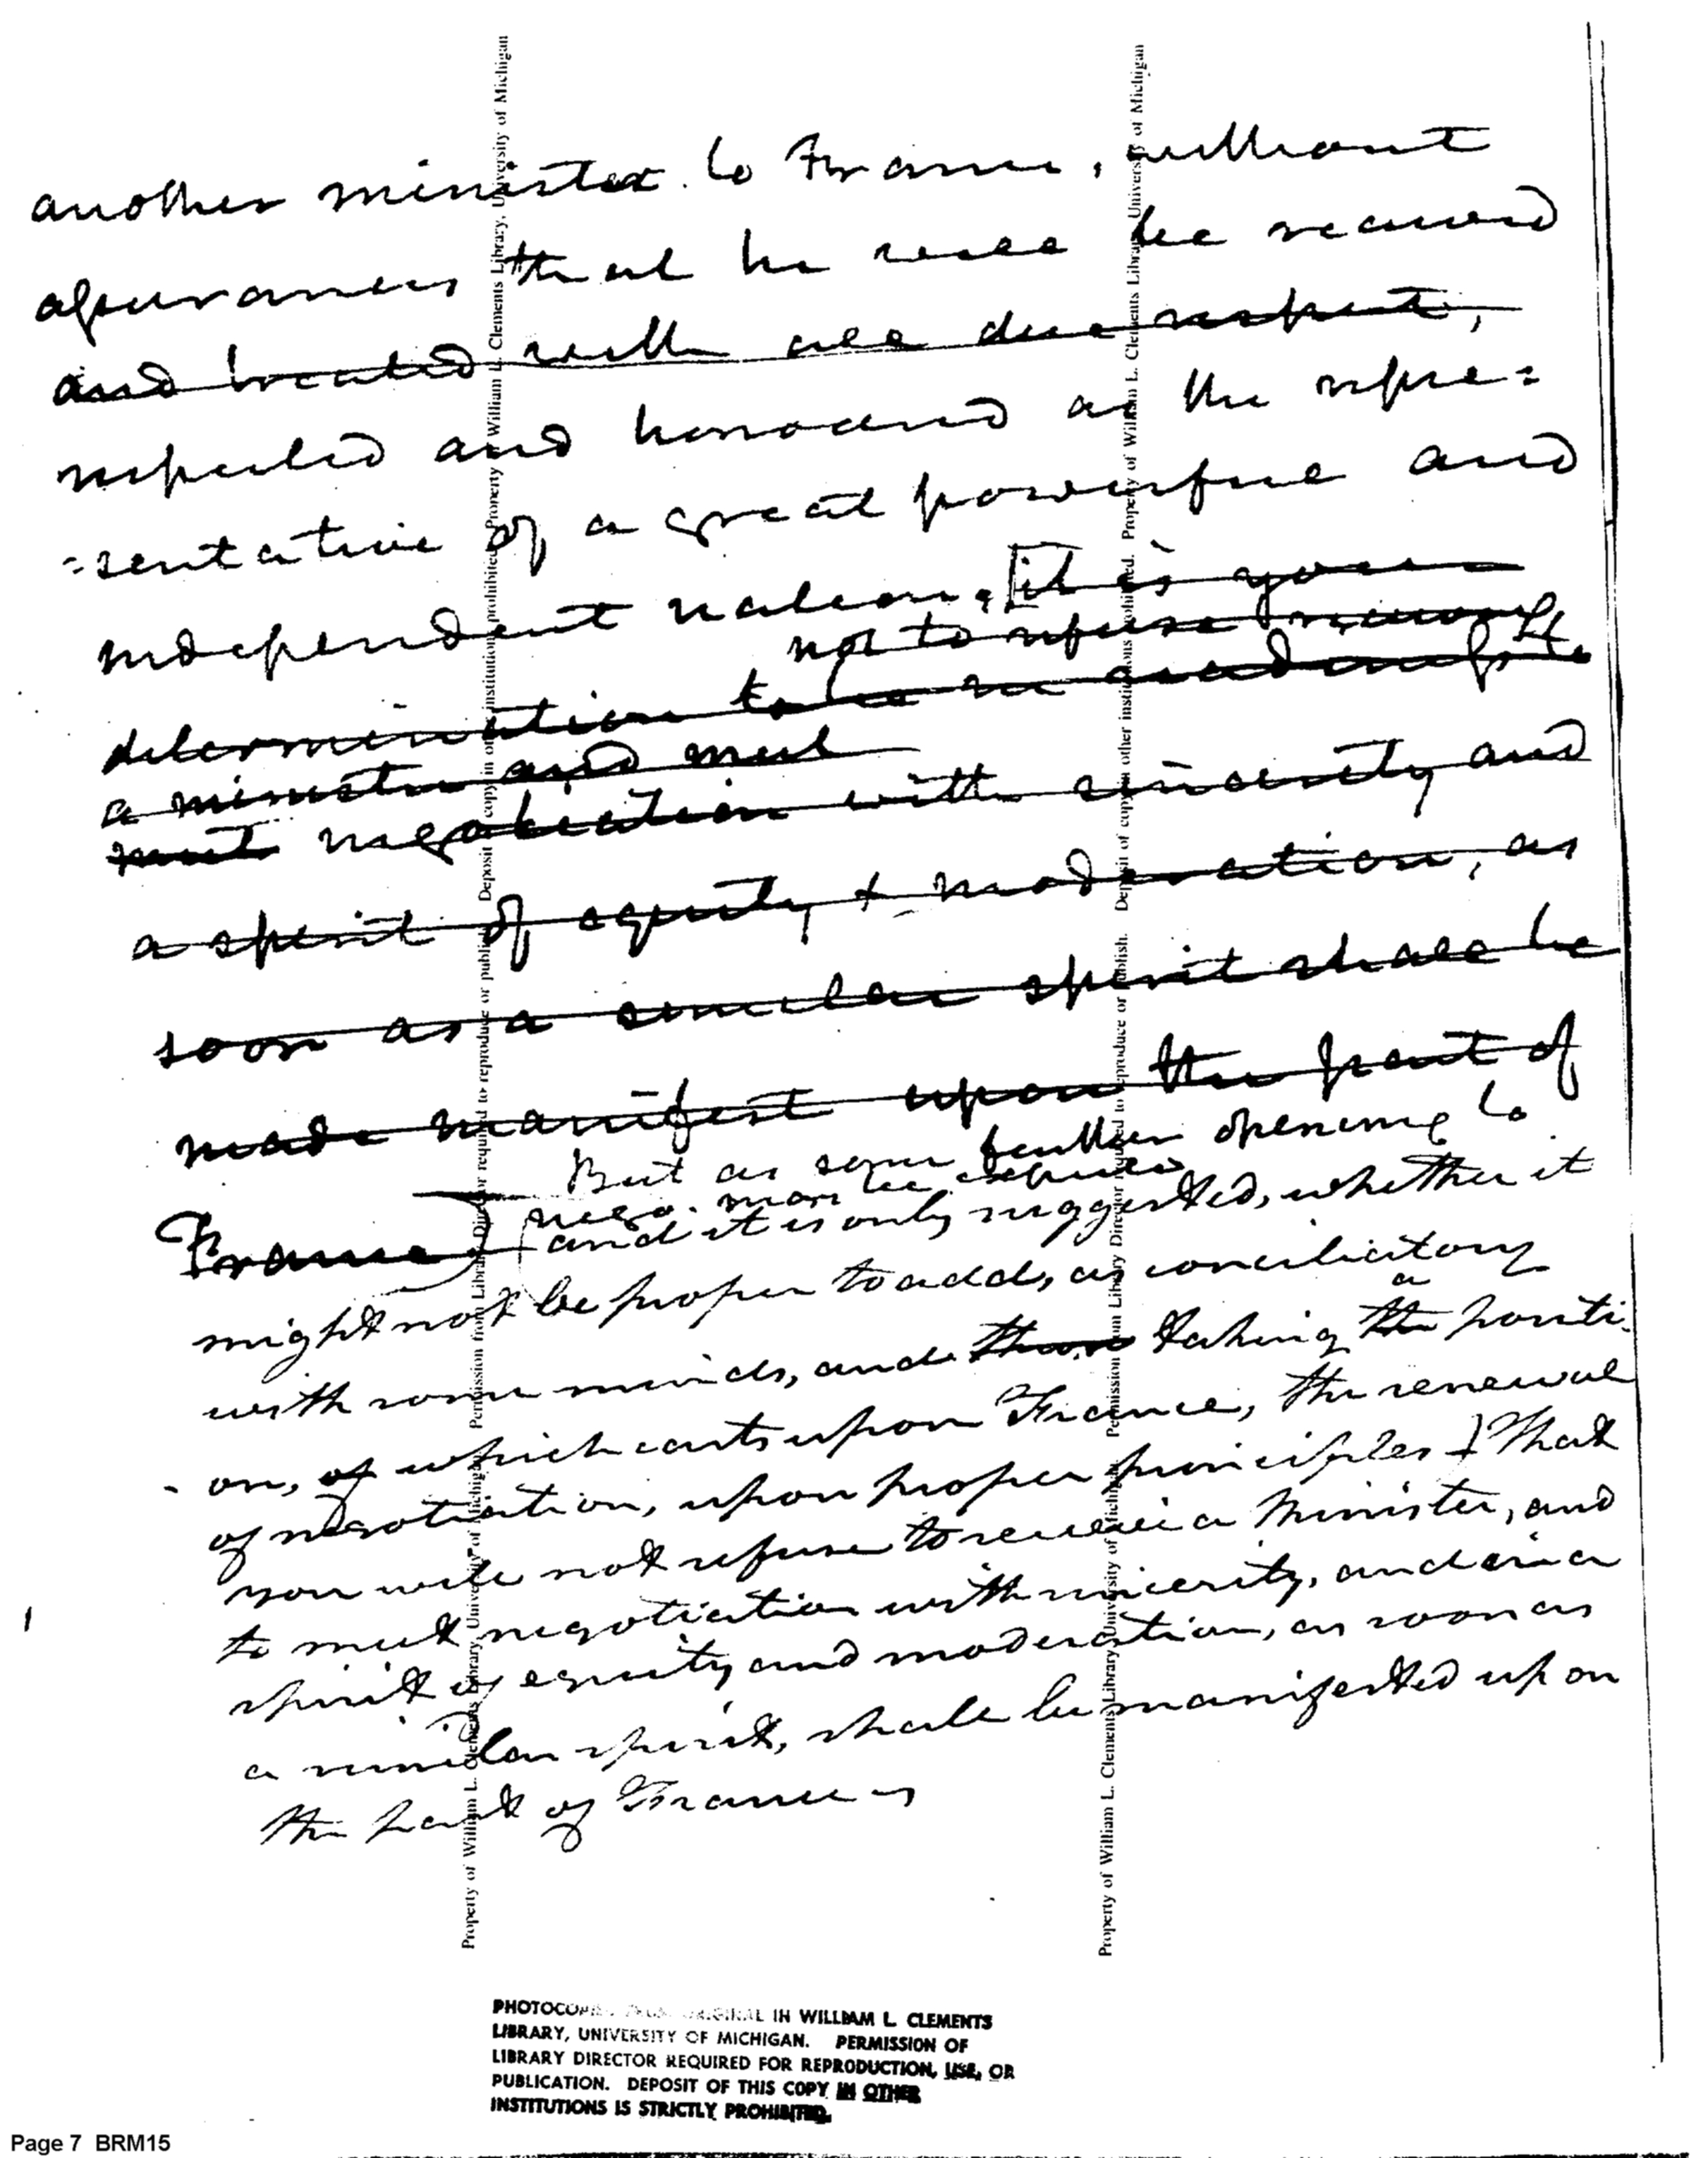 another minister to France, without
assurances that he will be received
and treated with all due respect,
respected and honoured as the repre=
=sentative of a great powerful and
independent nation. [it is your
not to refuse receiving
determination to be in readiness to
a minister and meet
meet negotiation with sincerity and
a spirit of equity & moderation, as
soon as a similar spirit shall be
made manifest upon the part of
But as some further opening to
nego. may be expected
France] and it is only suggested, whether it
might not be proper to add, as conciliatory
with some minds, and taking a positi-
on, of which casts upon France, the renewal
of negotiation, upon proper principles } That
you will not refuse to receive a Minister, and
to meet negotiation with sincerity, and in a
spirit of equity and moderation, as soon as
a similar spirit, shall be manifested upon
the part of France
Property of William L. Clements Library, University of Michigan. Permission from Library Director required to reproduce or publish. Deposit of copy in other institutions prohibited. Property of William L. Clements Library, University of Michigan
Property of William L. Clements Library, University of Michigan. Permission from Library Director required to reproduce or publish. Deposit of copy in other institutions prohibited. Property of William L. Clements Library, University of Michigan
PHOTOCOPIED FROM ORIGINAL IN WILLIAM L. CLEMENTS
LIBRARY, UNIVERSITY OF MICHIGAN. PERMISSION OF
LIBRARY DIRECTOR REQUIRED FOR REPRODUCTION, USE, OR
PUBLICATION. DEPOSIT OF THIS COPY IN OTHER
INSTITUTIONS IS STRICTLY PROHIBITED.
Page 7 BRM15